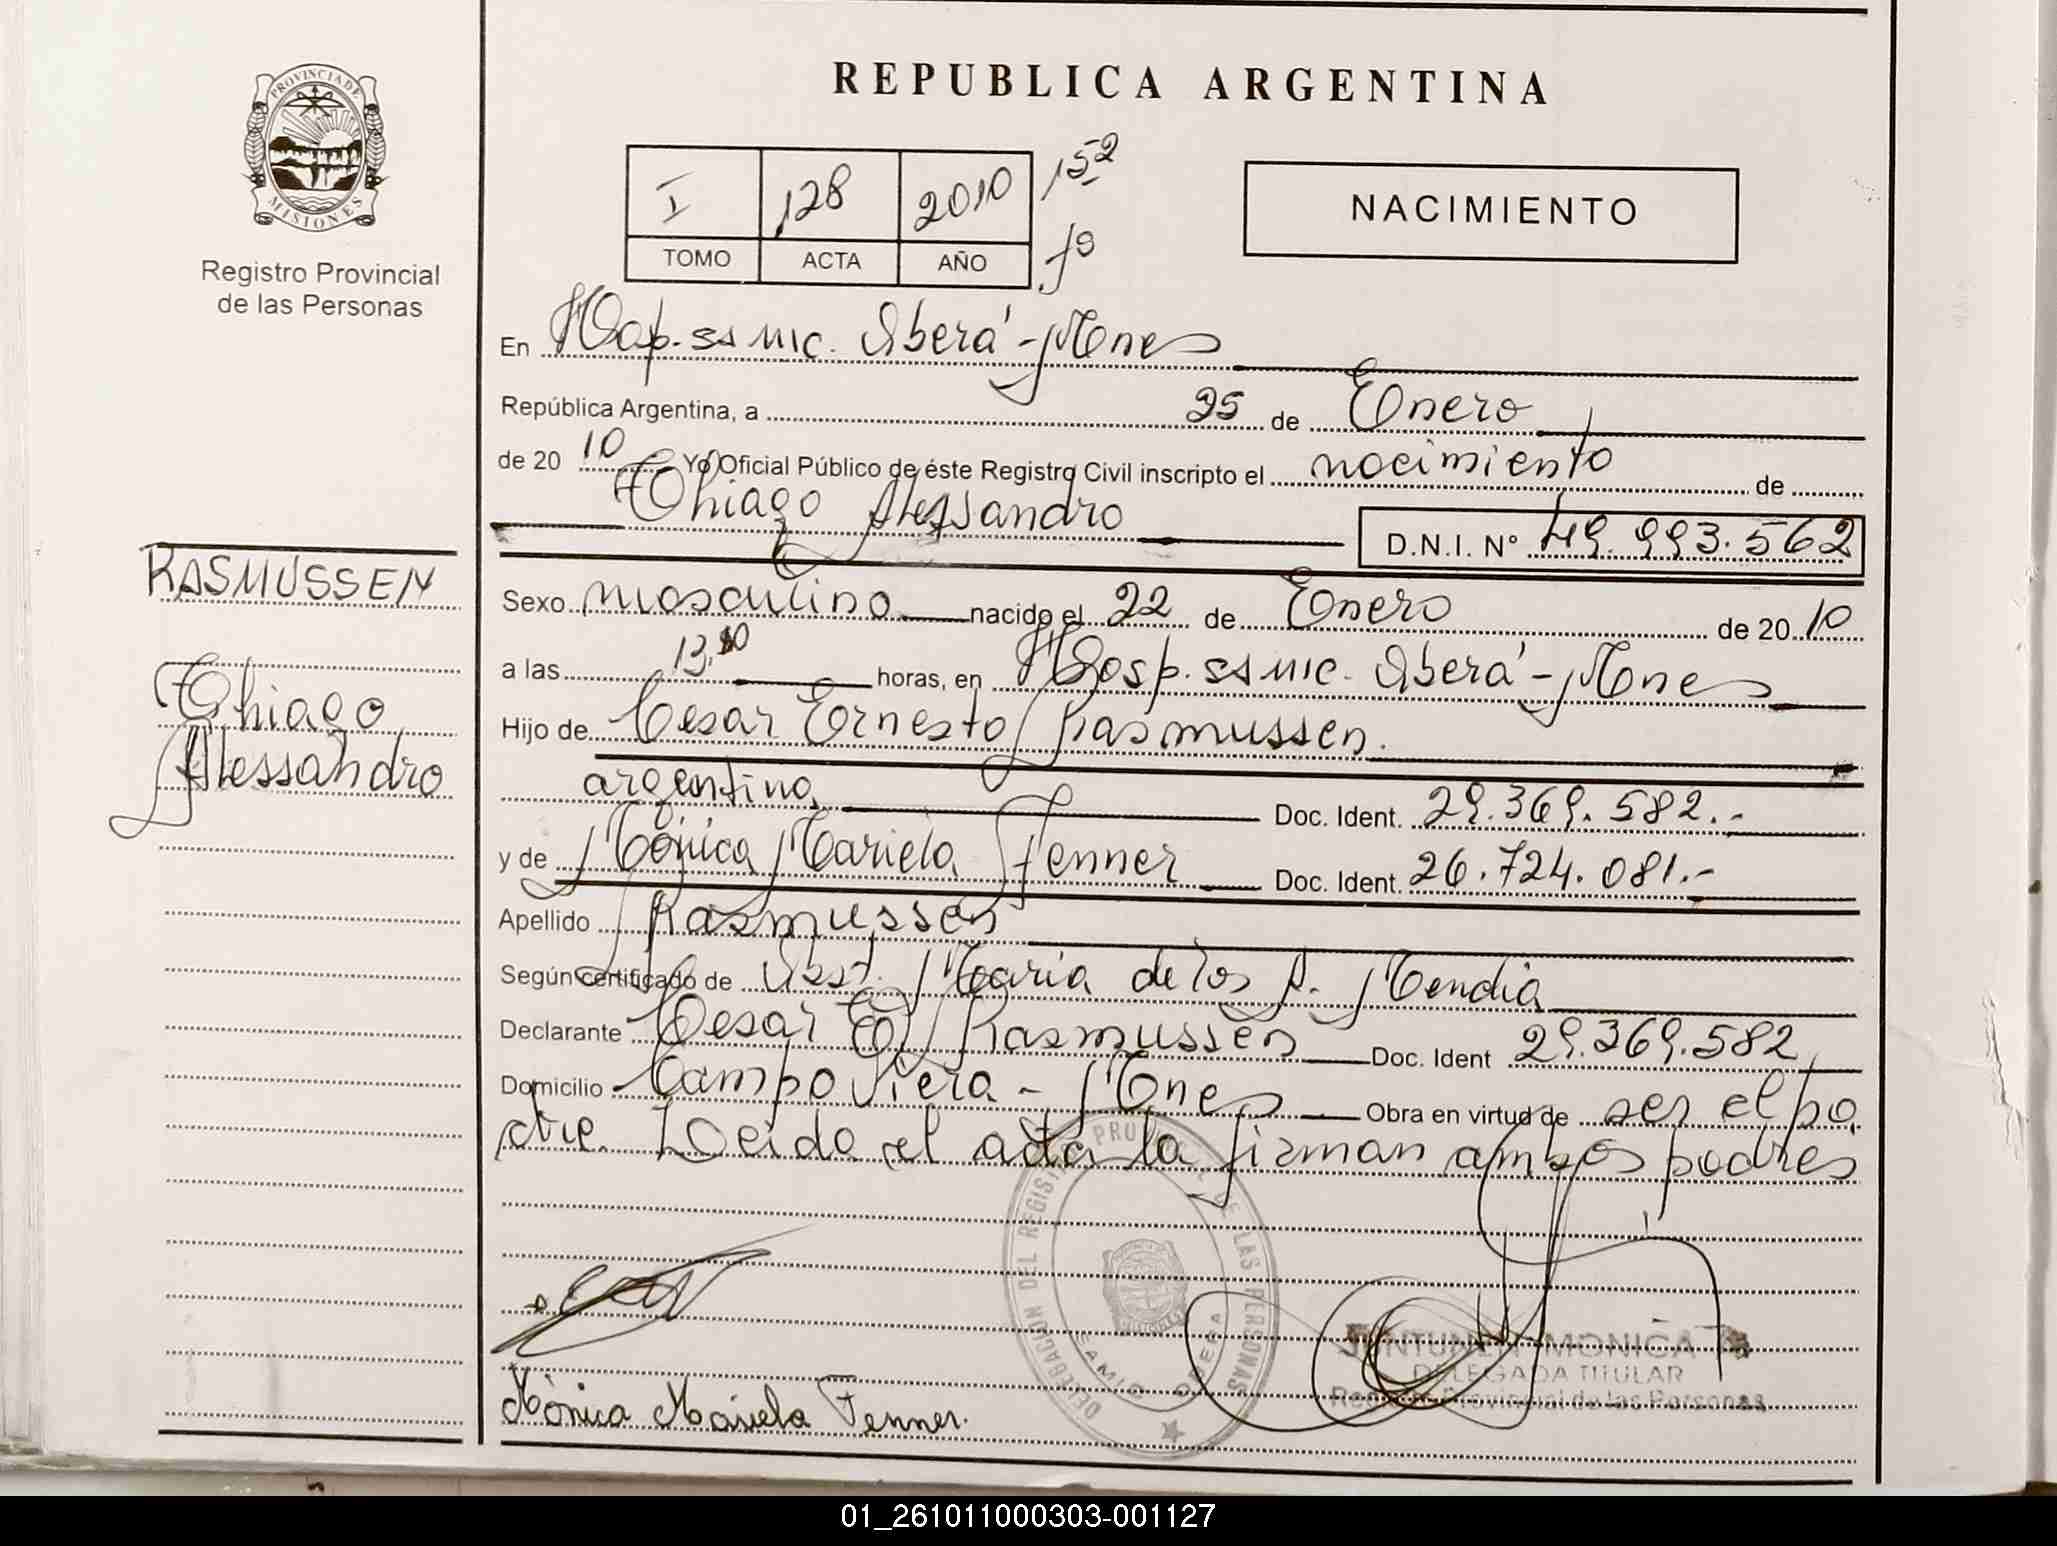 PROVINCIA DE
MISIONES
Registro Provincial
de las Personas
REPUBLICA ARGENTINA
I 128 2010 152
TOMO ACTA AÑO fº
NACIMIENTO
En Hosp. ss mic. Oberá - Mnes
República Argentina, a 25 de Enero
de 2010 Yo Oficial Público de éste Registro Civil inscripto el nacimiento de
Thiago Alessandro D.N.I. Nº 49.993.562
RASMUSSEN
Thiago
Alessandro
Sexo masculino nacido el 22 de Enero de 2010
a las 13,10 horas, en Hosp. ss mic. Oberá - Mnes
Hijo de Cesar Ernesto Rasmussen.
argentino Doc. Ident. 29.369.582.-
y de Mónica Mariela Fenner Doc. Ident. 26.724.081.-
Apellido Rasmussen
Según certificado de Obst. Maria de los A. Mendia
Declarante Cesar E. Rasmussen Doc. Ident 29.369.582
Domicilio Campo Viera - Mnes Obra en virtud de ser el pa
dre. Leida el acta la firman ambos padres
DELEGACION DEL REGISTRO PROVINCIAL DE LAS PERSONAS
OBERA
MONICA
DELEGADA TITULAR
Registro Provincial de las Personas
Mónica Mariela Fenner.
01_261011000303-001127